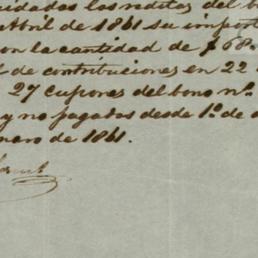 cuidadas los reditos del b
Abril de 1861 su import
on la cantidad de $68.
de contribuciones en 22
27 cupones del bono nº.
y no pagados desde 1º. de
nero de 1861.